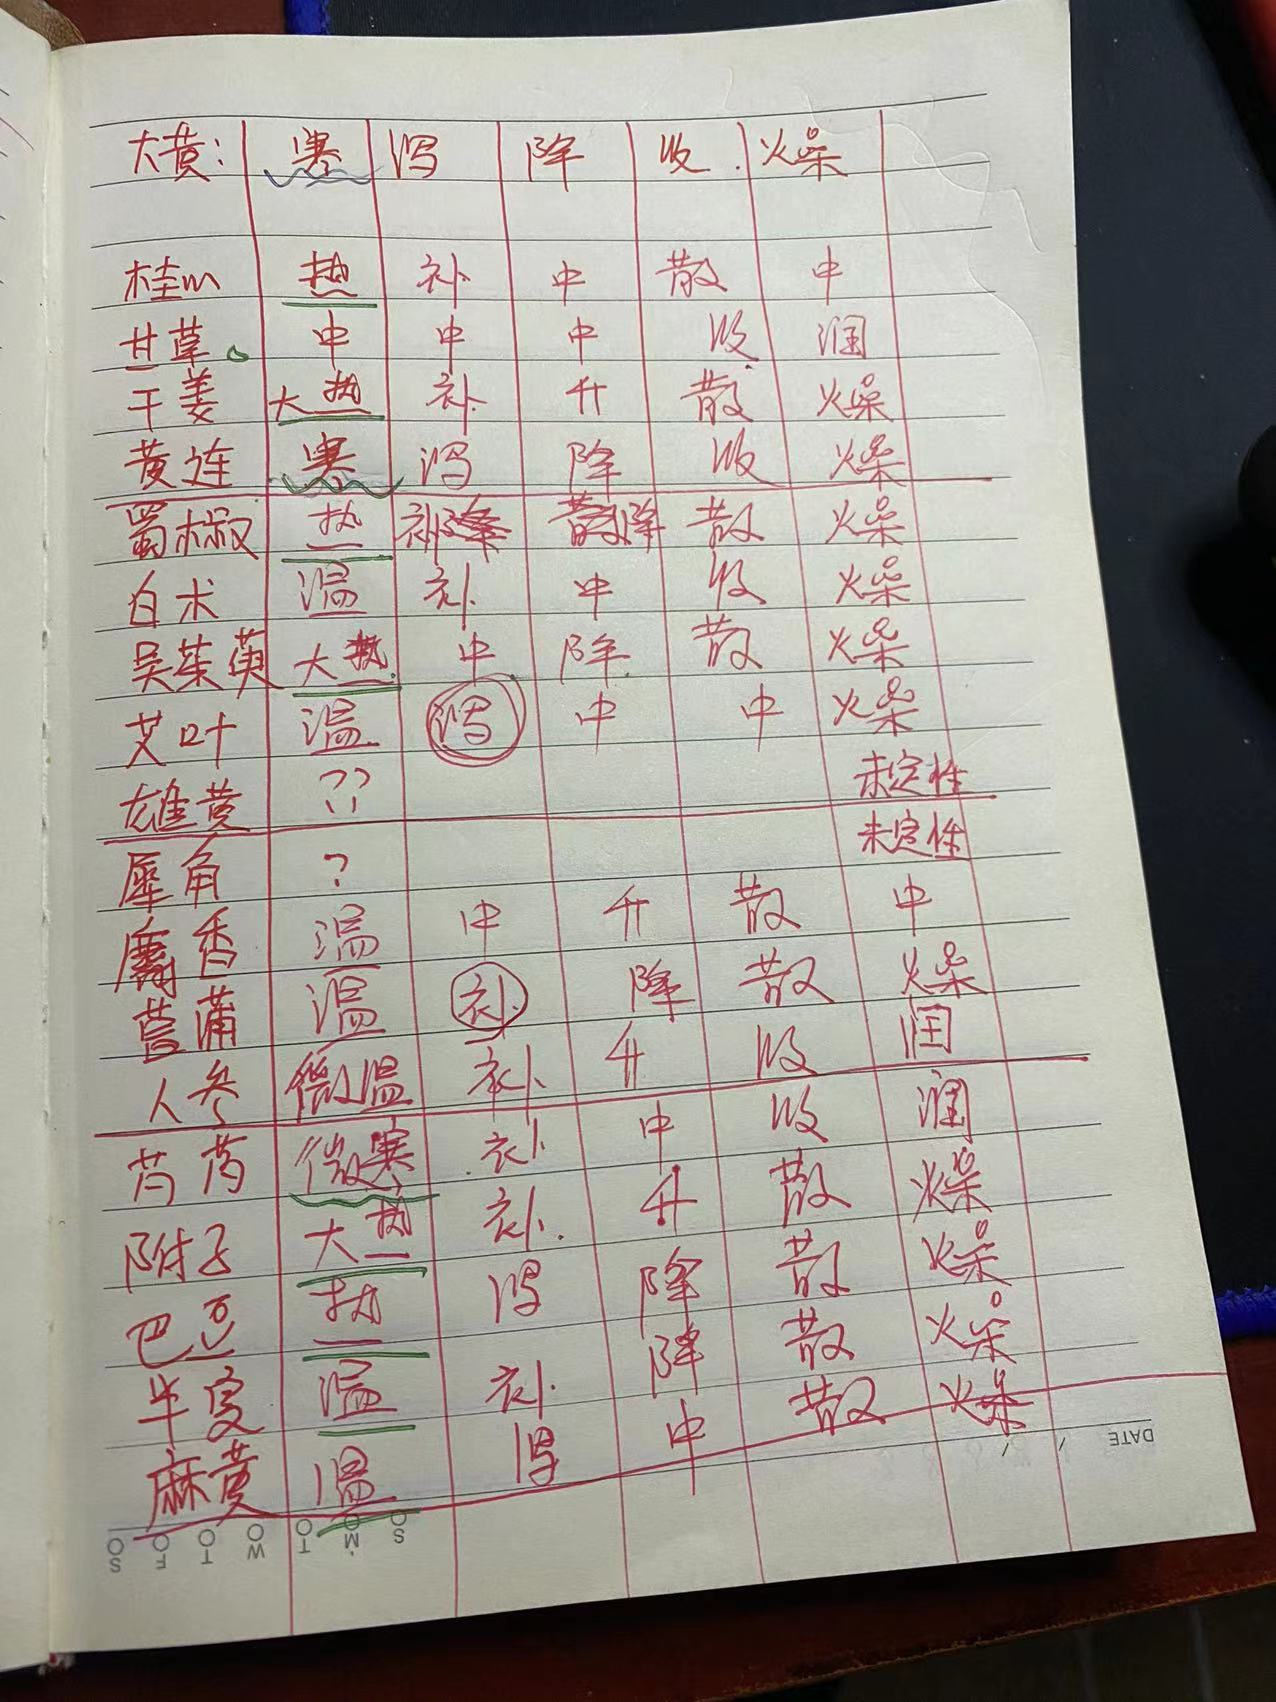 大黄: 寒 泻 降 收 燥
桂m 热 补 中 散 中
甘草。 中 中 中 收 润
干姜 大热 补 升 散 燥
黄连 寒 泻 降 收 燥
蜀椒 热 补 降 散 燥
白术 温 补 中 收 燥
吴茱萸 大热 中 降 散 燥
艾叶 温 泻 中 中 燥
雄黄 ?? 未定性
犀角 ? 未定性
麝香 温 中 升 散 中
菖蒲 温 补 降 散 燥
人参 微温 补 升 收 润
芍药 微寒 补 中 收 润
附子 大热 补 升 散 燥
巴豆 热 泻 降 散 燥
半夏 温 补 降 散 燥
麻黄 温 泻 中 散 燥
DATE / /
S M T W T F S